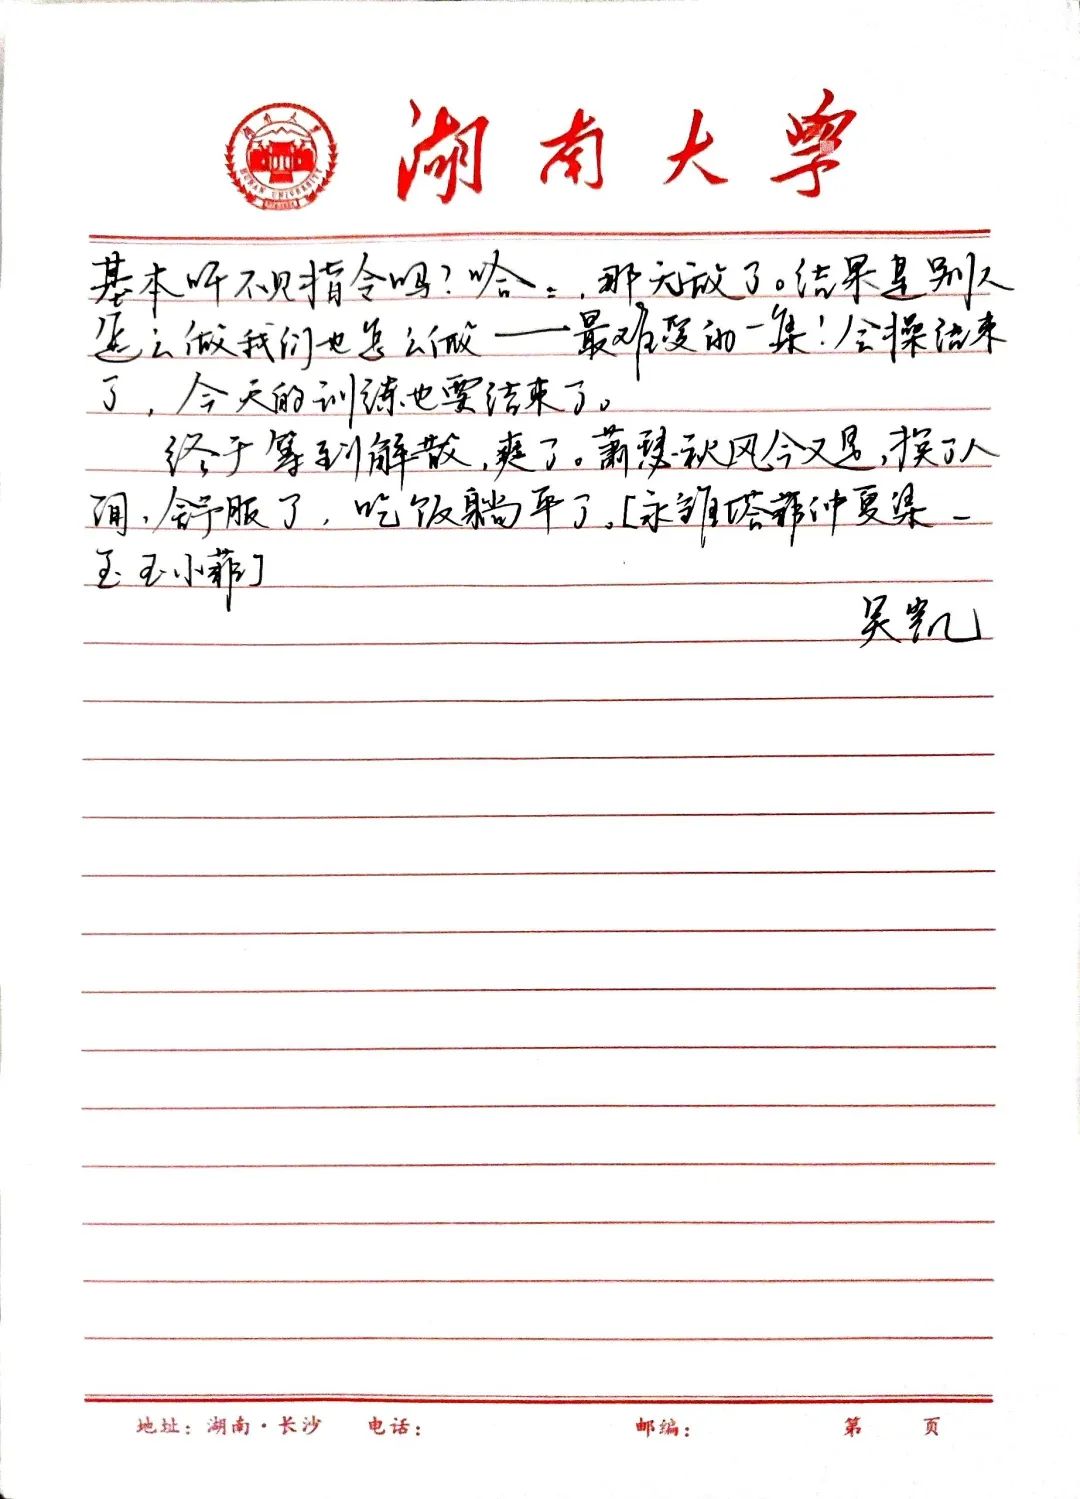 湖南大学
湖南大学
HUNAN UNIVERSITY
基本听不见指令吗?哈:,那无敌了。结果是别人
怎么做我们也怎么做——最难受的一集!会操结束
了,今天的训练也要结束了。
终于等到解散,爽了。萧瑟秋风今又是,换了人
间,舒服了,吃饭躺平了。[永雏塔菲仲夏梁
玉玉小菲]
吴凯
地址:湖南·长沙 电话: 邮编: 第 页